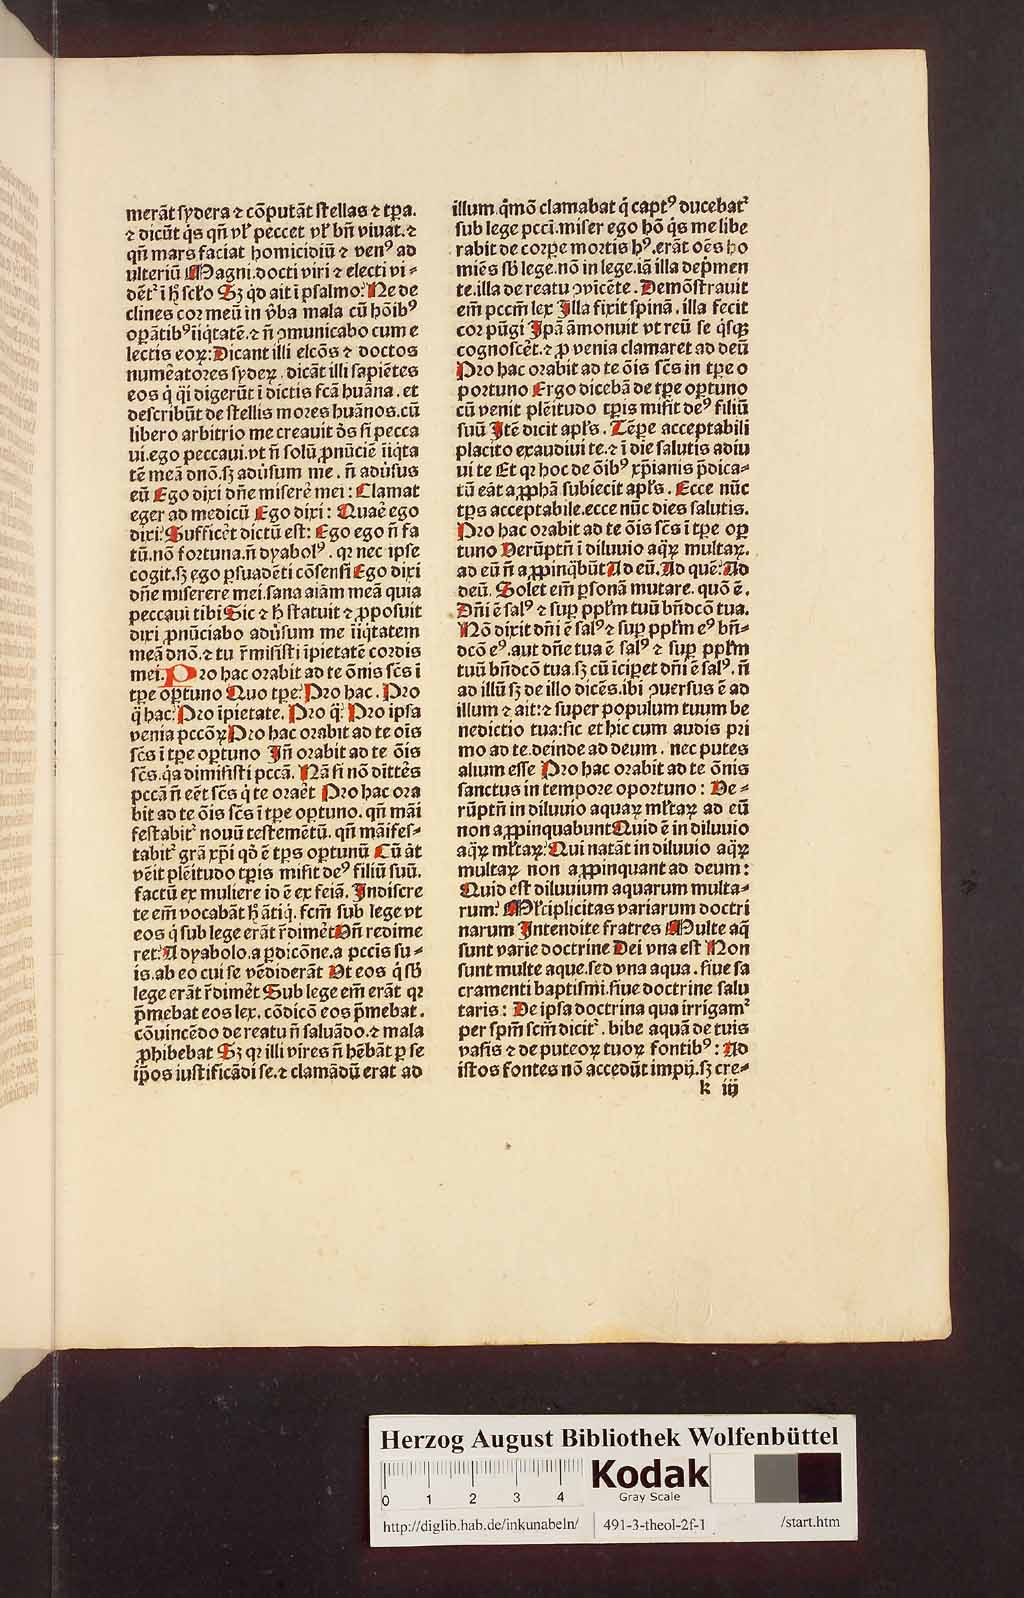 merãt sydera ⁊ cõputãt stellas ⁊ tꝑa.
⁊ dicũt q̇s qñ vľ peccet vľ bñ viuat. ⁊
qñ mars faciat homicidiũ ⁊ venꝰ ad
ulteriũ Magni.docti viri ⁊ electi vi-
dẽt᷑ ĩ h̾ scľo Sꝫ qd̾ ait ĩ psalmo: Ne de
clines cor meũ in v̾ba mala cũ hõibꝰ
oꝑãtibꝰ iiq̇tatẽ.⁊ ñ ꝯmunicabo cum e
lectis eoꝝ: Dicant illi elcõs ⁊ doctos
numẽatores sydeꝝ. dicãt illi sapiẽtes
eos q̇ q̃i digerũt ĩ dictis fcã huãna. et
describũt de stellis mores huãnos.cũ
libero arbitrio me creauit d̾s si pecca
ui.ego peccaui.vt ñ solũ ꝓnũciẽ iiq̇ta
tẽ meã dnõ.sꝫ adủsum me. ñ adủsus
eũ Ego dixi dñe miserẽ mei: Clamat
eger ad medicũ Ego dixi: Quaẽ ego
dixi: Sufficẽt dictũ est: Ego ego ñ fa
tũ.nõ fortuna.ñ dyabolꝰ. qꝛ nec ipse
cogit.sꝫ ego ꝑsuadẽti cõsensi Ego dixi
dñe miserere mei.sana aiãm meã quia
peccaui tibi Sic ⁊ h̾ statuit ⁊ ꝓposuit
dixi ꝓnũciabo adủsum me iiq̇tatem
meã dnõ.⁊ tu r̃misisti ĩpietatẽ cordis
mei. Pro hac orabit ad te õnis scẽs ĩ
tꝑe oꝑtuno Quo tꝑe: Pro hac. Pro
q̃ hac: Pro ĩpietate. Pro q̃: Pro ipsa
venia pccõꝝ Pro hac orabit ad te oĩs
scẽs ĩ tꝑe oꝑtuno Iñ orabit ad te õis
scẽs.q̇a dimisisti pccã. Nã si nõ dittẽs
pccã ñ eẽt scẽs q̇ te oraẽt Pro hac ora
bit ad te õis scẽs ĩ tꝑe oꝑtuno. qñ mãi
festabit᷑ nouũ testemẽtũ. qñ mãifes-
tabit᷑ grã xp̃i qd̾ ẽ tꝑs oꝑtunũ Cũ ãt
vẽit plẽitudo tꝑis misit deꝰ filiũ suũ.
factũ ex muliere id ẽ ex feiã. Indiscre
te em̃ vocabãt h̾ ãtiq̇. fcm̃ sub lege vt
eos q̇ sub lege erãt r̃dimẽt Vñ redime
ret: A dyabolo.a ꝑdicõne.a pccis su-
is.ab eo cui se vẽdiderãt Vt eos q̇ sb̾
lege erãt r̃dimẽt Sub lege em̃ erãt qꝛ
p̃mebat eos lex. cõdicõ eos p̃mebat.
cõuincẽdo de reatu ñ saluãdo.⁊ mala
ꝓhibebat Sꝫ qꝛ illi vires ñ hẽbãt ꝑ se
ip̃os iustificãdi se.⁊ clamãdũ erat ad
illum.q̇mõ clamabat q̇ captꝰ ducebat᷑
sub lege pcci.miser ego hõ q̇s me libe
rabit de corꝑe mortis hꝰ.erãt oẽs ho
miẽs sb̾ lege.nõ in lege.iã illa dep̃men
te.illa de reatu ꝯvicẽte. Demõstrauit
em̃ pccm̃ lex Illa fixit spinã. illa fecit
cor pũgi Ipã ãmonuit vt reũ se q̇sqꝫ
cognoscẽt.⁊ ꝓ venia clamaret ad deũ
Pro hac orabit ad te õis scẽs in tꝑe o
portuno Ergo dicebã de tꝑe oꝑtuno
cũ venit plẽitudo tꝑis misit deꝰ filiũ
suũ Itẽ dicit apľs. Tẽꝑe acceptabili
placito exaudiui te.⁊ ĩ die salutis adiu
ui te Et qꝛ hoc de õibꝰ xp̃ianis p̃dica-
tũ eãt a ꝓphã subiecit apľs. Ecce nũc
tꝑs acceptabile.ecce nũc dies salutis.
Pro hac orabit ad te õis scẽs ĩ tꝑe oꝑ
tuno Verũptñ ĩ diluuio aq̃ꝝ multaꝝ.
ad eũ ñ aꝓpinq̃bũt Ad eũ. Ad quẽ: Ad
deũ. Solet em̃ ꝑsonã mutare. quõ ẽ.
Dñi ẽ salꝰ ⁊ suꝑ ppľm tuũ bñdcõ tua.
Nõ dixit dñi ẽ salꝰ ⁊ suꝑ ppľm eꝰ bñ-
dcõ eꝰ.aut dñe tua ẽ salꝰ ⁊ suꝑ ppľm
tuũ bñdcõ tua.sꝫ cũ ĩciꝑet dñi ẽ salꝰ. ñ
ad illũ sꝫ de illo dicẽs.ibi ꝯuersus ẽ ad
illum ⁊ ait:⁊ super populum tuum be
nedictio tua:sic et hic cum audis pri
mo ad te.deinde ad deum. nec putes
alium esse Pro hac orabit ad te õnis
sanctus in tempore oportuno: Ve-
rũptñ in diluuio aquaꝝ mľtaꝝ ad eũ
non aꝓpinquabunt Quid ẽ in diluuio
aq̃ꝝ mľtaꝝ: Qui natãt in diluuio aq̃ꝝ
multaꝝ non aꝓpinquant ad deum:
Quid est diluuium aquarum multa-
rum: Mľciplicitas variarum doctri
narum Intendite fratres Multe aq̃
sunt varie doctrine Dei vna est Non
sunt multe aque.sed vna aqua. siue sa
cramenti baptismi.siue doctrine salu
taris: De ipsa doctrina qua irrigam᷑
per spm̃ scm̃ dicit᷑. bibe aquã de tuis
vasis ⁊ de puteoꝝ tuoꝝ fontibꝰ: Ad
istos fontes nõ accedũt impij.sꝫ cre-
k iij
Herzog August Bibliothek Wolfenbüttel
0 1 2 3 4
Kodak
Gray Scale
http://diglib.hab.de/inkunabeln/
491-3-theol-2f-1
/start.htm